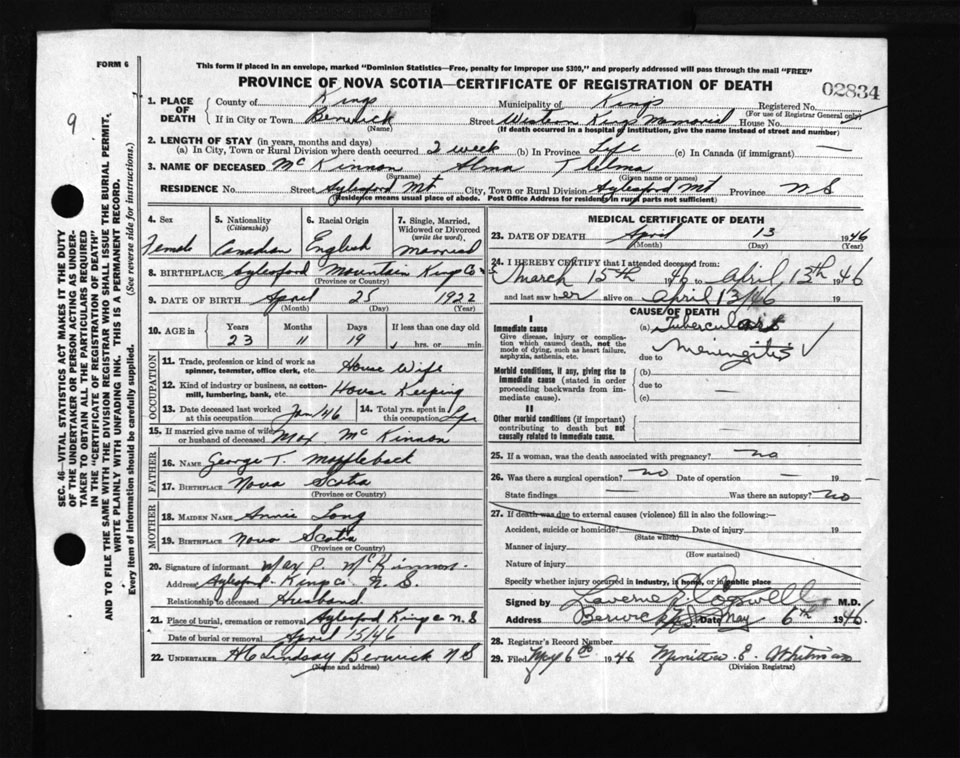 FORM 6
This form if placed in an envelope, marked "Dominion Statistics—Free, penalty for improper use $300," and properly addressed will pass through the mail "FREE"
PROVINCE OF NOVA SCOTIA—CERTIFICATE OF REGISTRATION OF DEATH
02834
9
SEC. 46—VITAL STATISTICS ACT MAKES IT THE DUTY
OF THE UNDERTAKER OR PERSON ACTING AS UNDER-
TAKER TO OBTAIN ALL THE PARTICULARS REQUIRED
IN THE "CERTIFICATE OF REGISTRATION OF DEATH"
AND TO FILE THE SAME WITH THE DIVISION REGISTRAR WHO SHALL ISSUE THE BURIAL PERMIT,
WRITE PLAINLY WITH UNFADING INK. THIS IS A PERMANENT RECORD.
Every item of information should be carefully supplied. (See reverse side for instructions.)
1. PLACE OF DEATH { County of Kings Municipality of Kings Registered No.
(For use of Registrar General only)
If in City or Town Berwick Street Western Kings Memorial House No.
(Name) (If death occurred in a hospital or institution, give the name instead of street and number)
2. LENGTH OF STAY (in years, months and days)
(a) In City, Town or Rural Division where death occurred 2 week (b) In Province Life (c) In Canada (if immigrant) —
3. NAME OF DECEASED McKinnon Alma Thelma
(Surname) (Given name or names)
RESIDENCE No. Street Aylesford Mt City, Town or Rural Division Aylesford Mt Province N S
(Residence means usual place of abode. Post Office Address for residents in rural parts not sufficient)
4. Sex 5. Nationality (Citizenship) 6. Racial Origin 7. Single, Married, Widowed or Divorced (write the word)
Female Canadian English Married
8. BIRTHPLACE Aylesford Mountain Kings Co
(Province or Country)
9. DATE OF BIRTH April 25 1922
(Month) (Day) (Year)
10. AGE IN Years Months Days If less than one day old
23 11 19 hrs. or min.
OCCUPATION
11. Trade, profession or kind of work as spinner, teamster, office clerk, etc. House Wife
12. Kind of industry or business, as cotton-mill, lumbering, bank, etc. House Keeping
13. Date deceased last worked at this occupation Jan/46 14. Total yrs. spent in this occupation
15. If married give name of wife or husband of deceased Max McKinnon
FATHER
16. NAME George T. Mapplebeck
17. BIRTHPLACE Nova Scotia
(Province or Country)
MOTHER
18. MAIDEN NAME Annie Long
19. BIRTHPLACE Nova Scotia
(Province or Country)
20. Signature of informant Max P. McKinnon.
Address Aylesford Kings Co N. S.
Relationship to deceased Husband
21. Place of burial, cremation or removal Aylesford Kings Co N. S
Date of burial or removal April 15/46
22. UNDERTAKER H C Lindsay Berwick N S
(Name and address)
MEDICAL CERTIFICATE OF DEATH
23. DATE OF DEATH April 13 1946
(Month) (Day) (Year)
24. I HEREBY CERTIFY that I attended deceased from:
March 15th 1946 to April 13th 1946
and last saw her alive on April 13/46 19
CAUSE OF DEATH
I
Immediate cause
Give disease, injury or complication which caused death, not the mode of dying, such as heart failure, asphyxia, asthenia, etc.
(a) Tuberculous
Meningitis
due to
Morbid conditions, if any, giving rise to immediate cause (stated in order proceeding backwards from immediate cause).
(b)
due to —
(c)
II
Other morbid conditions (if important) contributing to death but not causally related to immediate cause. —
25. If a woman, was the death associated with pregnancy? no
26. Was there a surgical operation? no Date of operation — 19
State findings — Was there an autopsy? no
27. If death was due to external causes (violence) fill in also the following:—
Accident, suicide or homicide? Date of injury 19
(State which)
Manner of injury
(How sustained)
Nature of injury
Specify whether injury occurred in industry, in home, or in public place
Signed by Cogswell M.D.
Address Berwick N.S. Date May 6th 1946.
28. Registrar's Record Number
29. Filed May 6 1946
(Division Registrar)